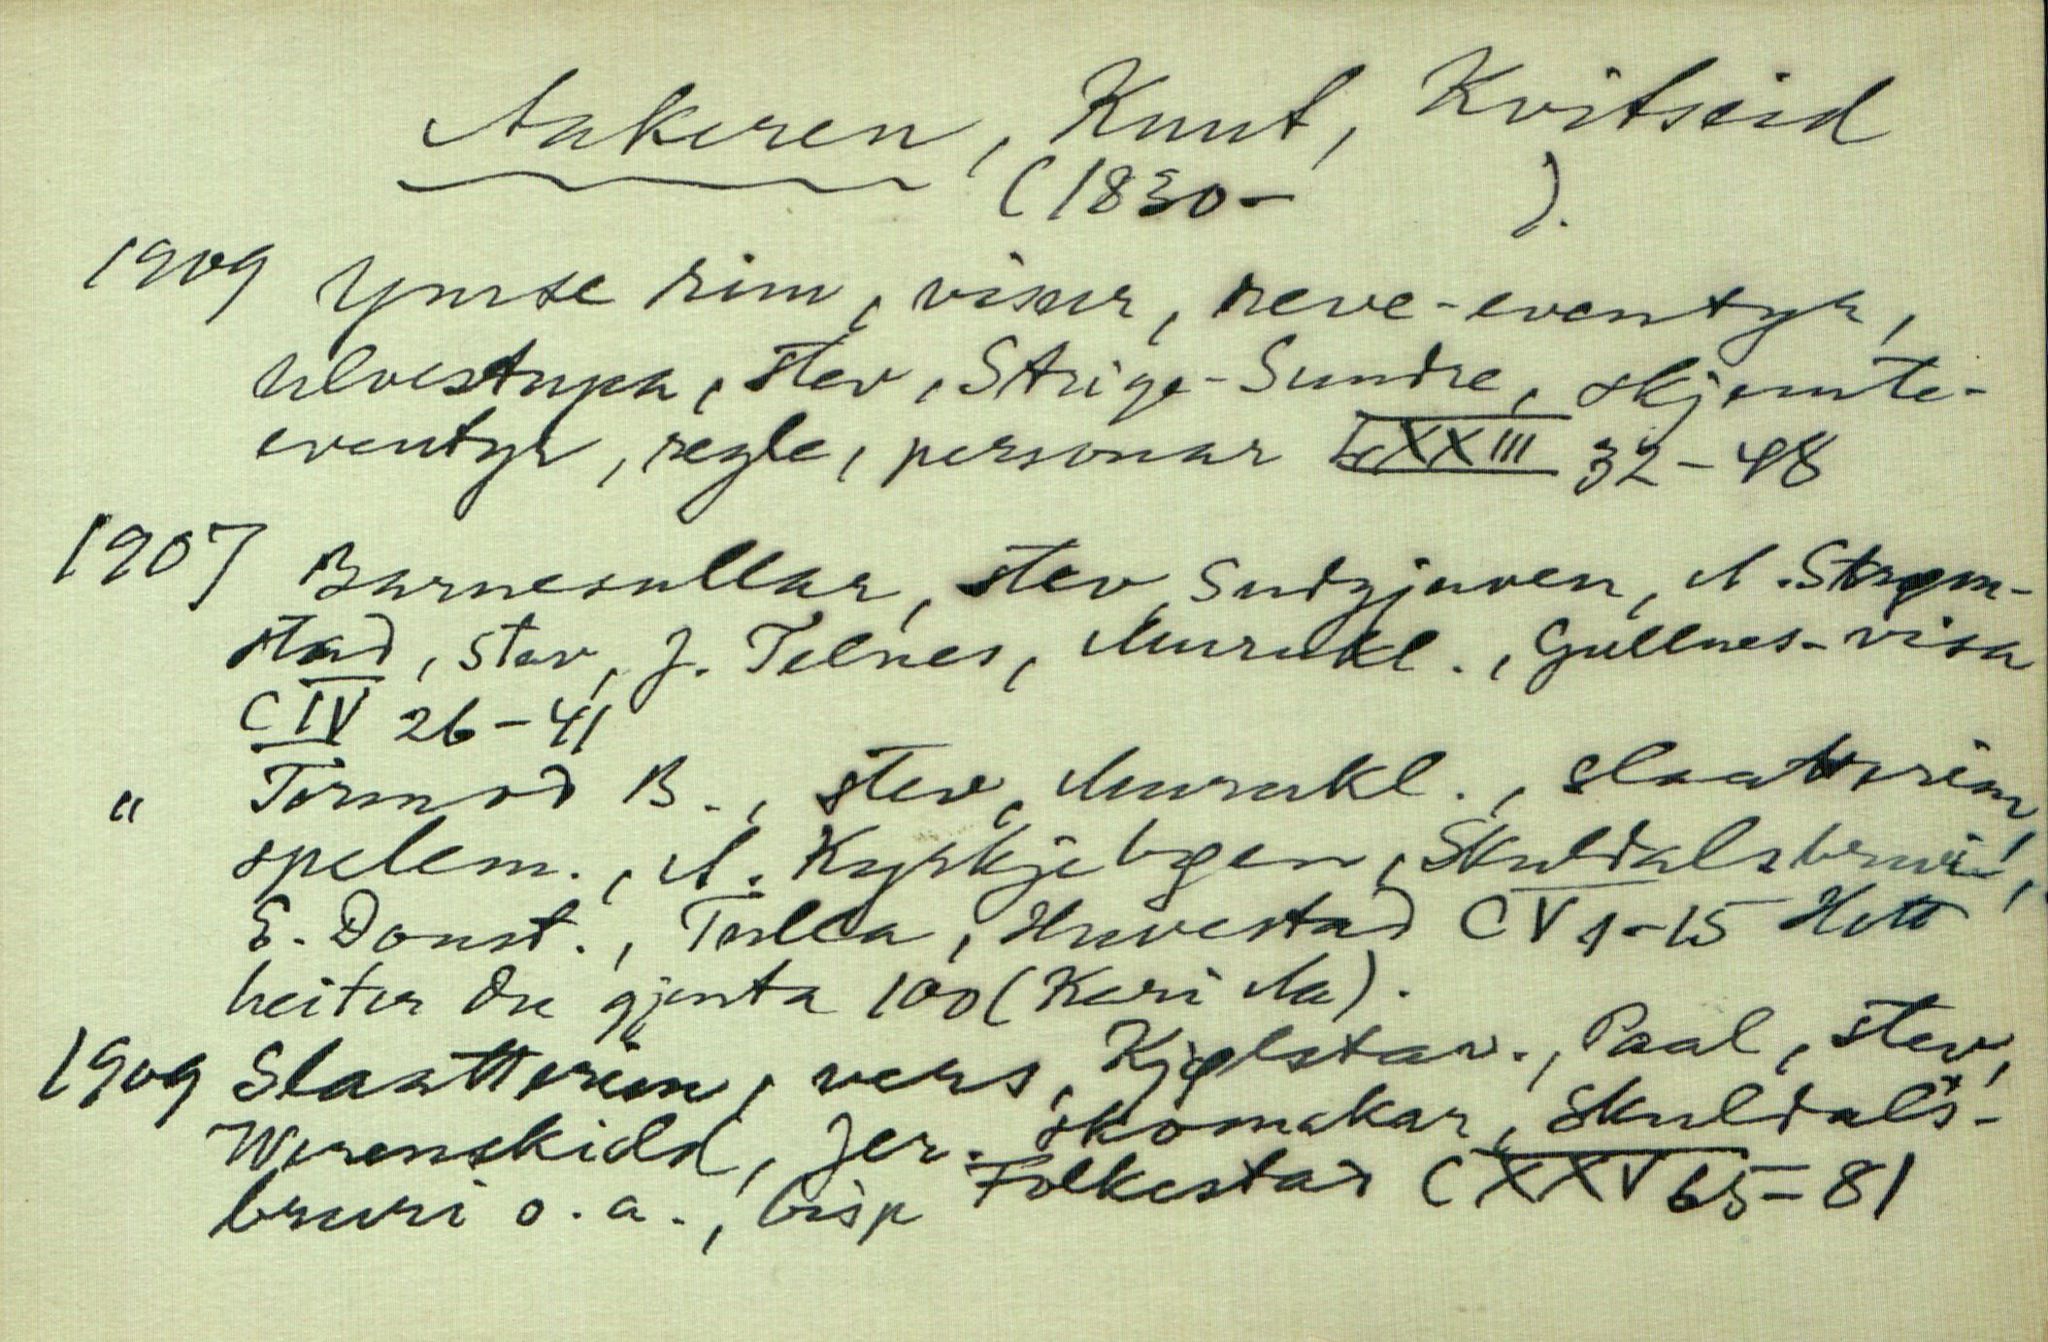 Aakeren, Knut, Kvitseid
(1830- ).
1909 Ymse rim, visur, reve-eventyr,
ulvestupa, stev, Strige-Sundre, skjemte-
eventyr, regle, personar XXIII 32-48
1907 Barnesullar, stev, Sudgjuven, A. Strøm-
stad, stev, J. Telnes, Murukl., Gullnes-visa
CIV 26-41
" Tormod B., stev, Murukl., slaatterim,
spelem., A. Kyrkjebøen, Skuldalsbruri,
E. Donst., Tulla, Huvestad CV 1-15 Hott
heiter du gjenta 100 (Kari Aa).
1909 Slaatterim, vers, Kjølstav., Paal, stev,
Werenskiold, Jer. skomakar, Skuldals-
bruri o. a., bisp Folkestad CXXV 65-81